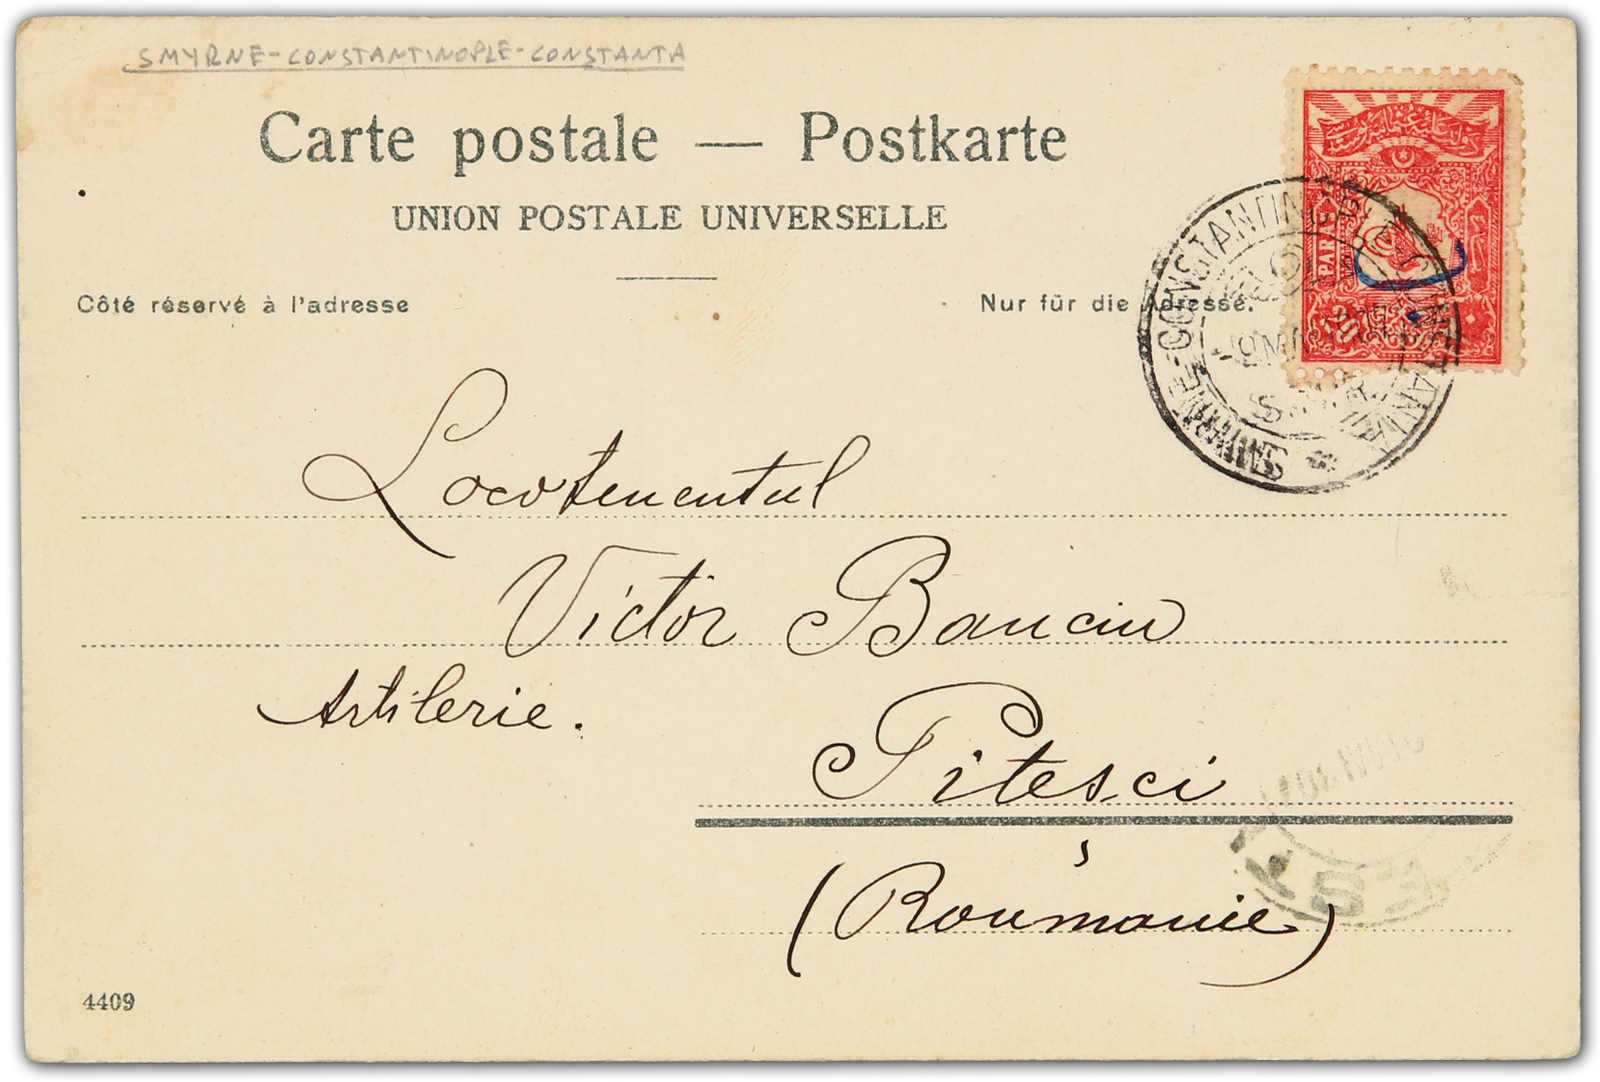 SMYRNE-CONSTANTINOPLE-CONSTANTA
Carte postale — Postkarte
UNION POSTALE UNIVERSELLE
Côté réservé à l'adresse
Nur für die Adresse.
PARA
20
SMYRNE-CONSTANTINOPLE-CONSTANTA
Locotenentul
Victor Banciu
Artilerie.
Pitesci
(Roumanie)
EST
4409